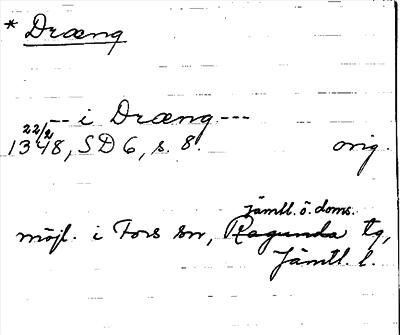 * Dræng
-- i Dræng ---
22/2
1348, SD 6, s. 8. orig.
jämtl. ö. doms.
möjl. i Fors sn, Ragunda tg,
Jämtl. l.